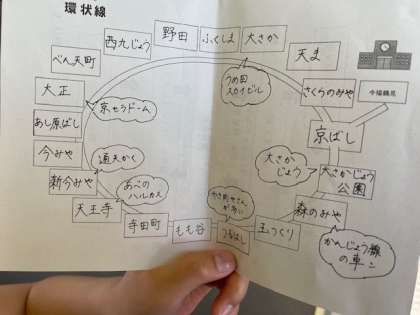 環状線
大さか
天ま
さくらのみや
今福鶴見
京ばし
大さかじょう
公園
森のみや
玉つくり
つるはし
もも谷
寺田町
天王寺
新今みや
今みや
あし原ばし
大正
べん天町
西九じょう
野田
ふくしま
うめ田
スカイビル
大さか
じょう
かんじょう線
の車
京セラドーム
通天かく
あべの
ハルカス
やき肉やさん
が多い